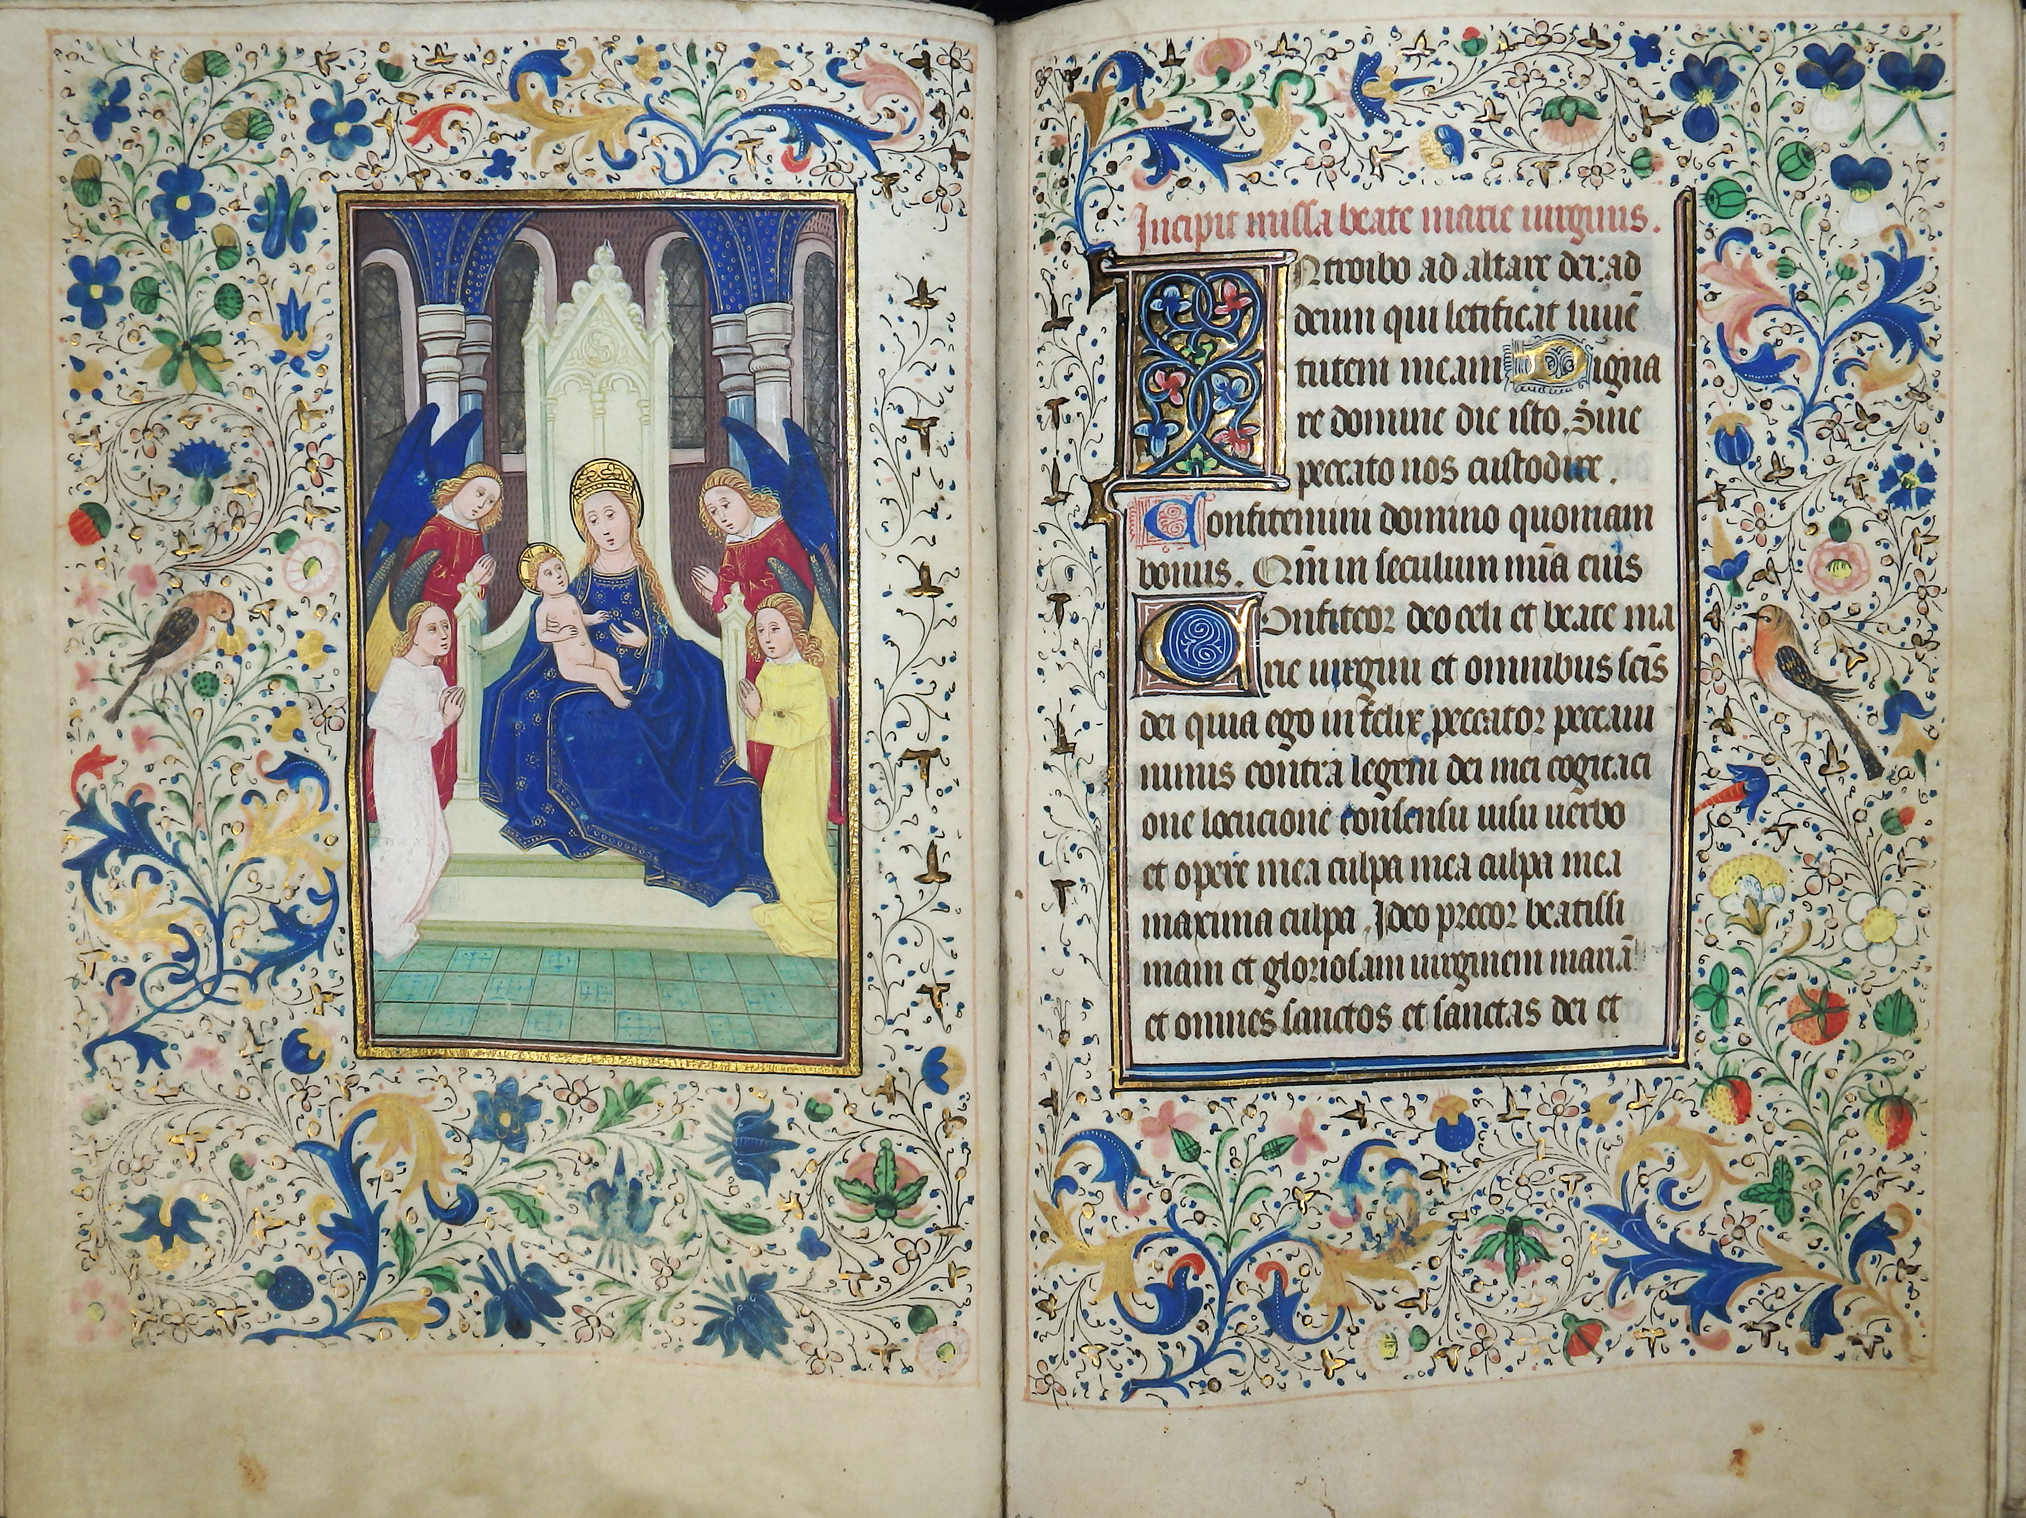 Incipit missa beate marie uirginis.
Introibo ad altare dei: ad
deum qui letificat iuuē
tutem meam Digna
re domine die isto. Sine
peccato nos custodire.
Confitemini domino quoniam
bonus. Qm̄ in seculum mīa eius
Confiteor deo celi et beate ma
rie uirgini et omnibus scīs
dei quia ego infelix peccator peccaui
nimis contra legem dei mei cogitaci
one locucione consensu uisu uerbo
et opere mea culpa mea culpa mea
maxima culpa. Ideo precor beatissi
mam et gloriosam uirginem mariā
et omnes sanctos et sanctas dei et